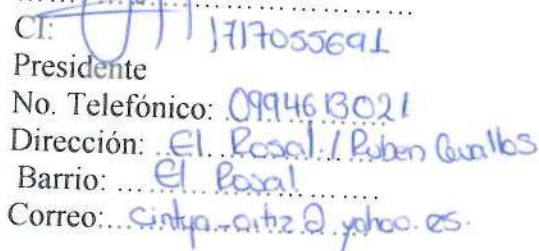 CI: 1717055691
Presidente
No. Telefónico: 0994613021
Dirección: El Rosal / Ruben Cevallos
Barrio: El Rosal
Correo: cintya-ortiz@yahoo.es.